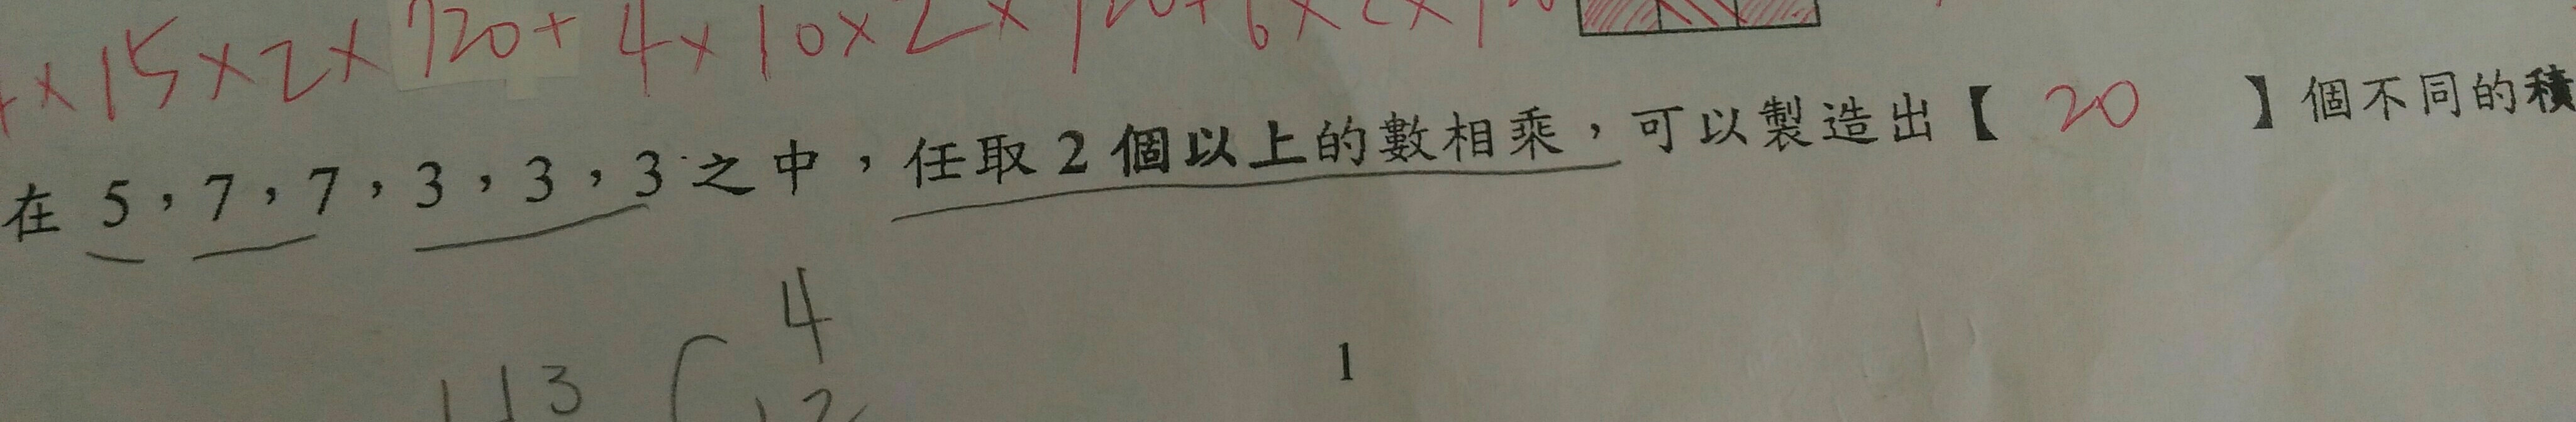 ×15×2×720+4×10×2×120+6×2×1
在 5，7，7，3，3，3 之中，任取 2 個以上的數相乘，可以製造出【 20 】個不同的積
4
113
12
1